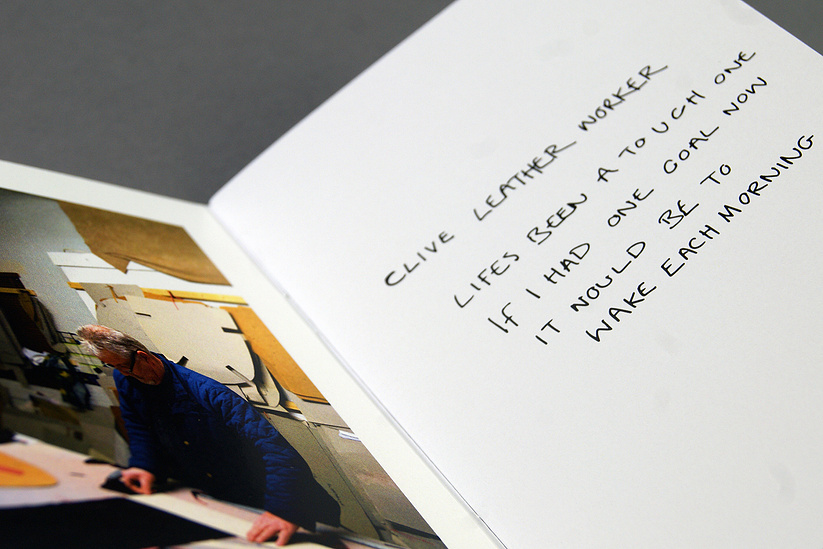 CLIVE LEATHER WORKER
LIFES BEEN A TOUGH ONE
IF I HAD ONE GOAL NOW
IT WOULD BE TO
WAKE EACH MORNING